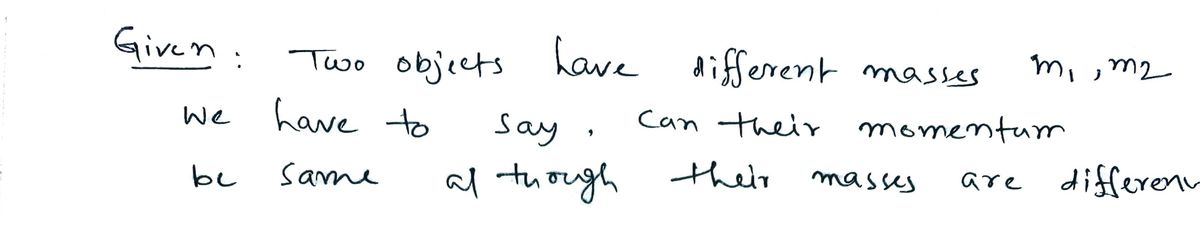 Given : Two objects have different masses m1, m2
We have to say, can their momentum
be same although their masses are differen